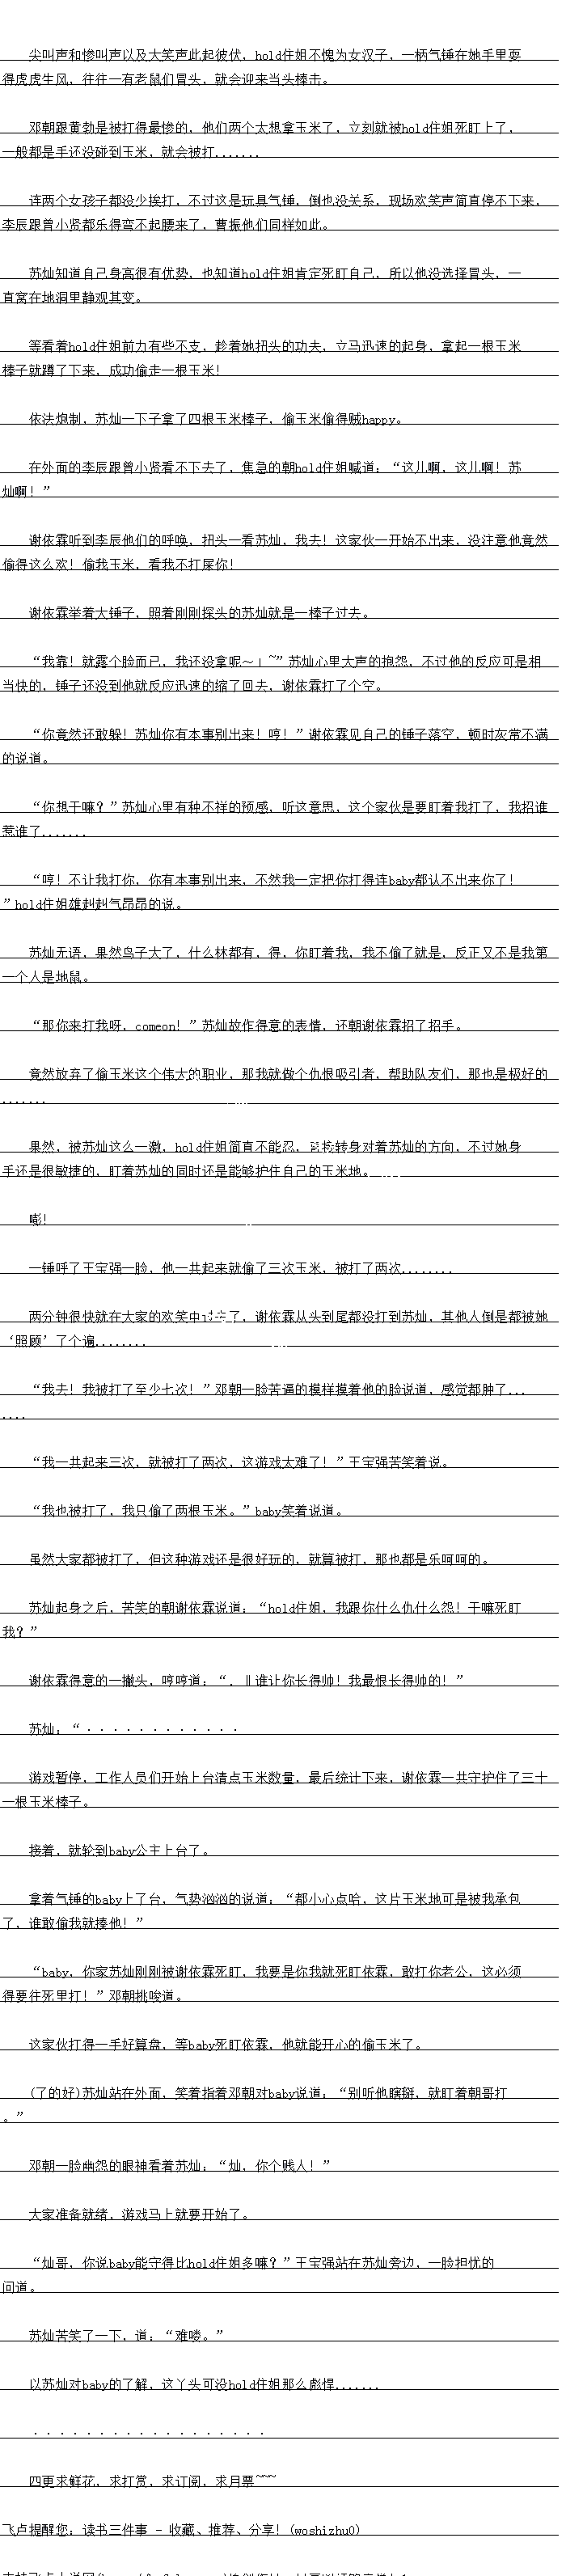 尖叫声和惨叫声以及大笑声此起彼伏，hold住姐不愧为女汉子，一柄气锤在她手里耍
得虎虎生风，往往一有老鼠们冒头，就会迎来当头棒击。
邓朝跟黄勃是被打得最惨的，他们两个太想拿玉米了，立刻就被hold住姐死盯上了，
一般都是手还没碰到玉米，就会被打.......
连两个女孩子都没少挨打，不过这是玩具气锤，倒也没关系，现场欢笑声简直停不下来，
李辰跟曾小贤都乐得弯不起腰来了，曹振他们同样如此。
苏灿知道自己身高很有优势，也知道hold住姐肯定死盯自己，所以他没选择冒头，一
直窝在地洞里静观其变。
等看着hold住姐前力有些不支，趁着她扭头的功夫，立马迅速的起身，拿起一根玉米
棒子就蹲了下来，成功偷走一根玉米！
依法炮制，苏灿一下子拿了四根玉米棒子，偷玉米偷得贼happy。
在外面的李辰跟曾小贤看不下去了，焦急的朝hold住姐喊道：“这儿啊，这儿啊！苏
灿啊！”
谢依霖听到李辰他们的呼唤，扭头一看苏灿，我去！这家伙一开始不出来，没注意他竟然
偷得这么欢！偷我玉米，看我不打屎你！
谢依霖举着大锤子，照着刚刚探头的苏灿就是一棒子过去。
“我靠！就露个脸而已，我还没拿呢～！~”苏灿心里大声的抱怨，不过他的反应可是相
当快的，锤子还没到他就反应迅速的缩了回去，谢依霖打了个空。
“你竟然还敢躲！苏灿你有本事别出来！哼！”谢依霖见自己的锤子落空，顿时灰常不满
的说道。
“你想干嘛？”苏灿心里有种不祥的预感，听这意思，这个家伙是要盯着我打了，我招谁
惹谁了.......
“哼！不让我打你，你有本事别出来，不然我一定把你打得连baby都认不出来你了！
”hold住姐雄赳赳气昂昂的说。
苏灿无语，果然鸟子大了，什么林都有，得，你盯着我，我不偷了就是，反正又不是我第
一个人是地鼠。
“那你来打我呀，comeon！”苏灿故作得意的表情，还朝谢依霖招了招手。
竟然放弃了偷玉米这个伟大的职业，那我就做个仇恨吸引者，帮助队友们，那也是极好的
.......
果然，被苏灿这么一激，hold住姐简直不能忍，转身对着苏灿的方向，不过她身
手还是很敏捷的，盯着苏灿的同时还是能够护住自己的玉米地。
嘭！
一锤呼了王宝强一脸，他一共起来就偷了三次玉米，被打了两次........
两分钟很快就在大家的欢笑中过去了，谢依霖从头到尾都没打到苏灿，其他人倒是都被她
‘照顾’了个遍........
“我去！我被打了至少七次！”邓朝一脸苦逼的模样摸着他的脸说道，感觉都肿了...
....
“我一共起来三次，就被打了两次，这游戏太难了！”王宝强苦笑着说。
“我也被打了，我只偷了两根玉米。”baby笑着说道。
虽然大家都被打了，但这种游戏还是很好玩的，就算被打，那也都是乐呵呵的。
苏灿起身之后，苦笑的朝谢依霖说道：“hold住姐，我跟你什么仇什么怨！干嘛死盯
我？”
谢依霖得意的一撇头，哼哼道：“．‖谁让你长得帅！我最恨长得帅的！”
苏灿：“············
游戏暂停，工作人员们开始上台清点玉米数量，最后统计下来，谢依霖一共守护住了三十
一根玉米棒子。
接着，就轮到baby公主上台了。
拿着气锤的baby上了台，气势汹汹的说道：“都小心点哈，这片玉米地可是被我承包
了，谁敢偷我就揍他！”
“baby，你家苏灿刚刚被谢依霖死盯，我要是你我就死盯依霖，敢打你老公，这必须
得要往死里打！”邓朝挑唆道。
这家伙打得一手好算盘，等baby死盯依霖，他就能开心的偷玉米了。
(了的好)苏灿站在外面，笑着指着邓朝对baby说道：“别听他瞎掰，就盯着朝哥打
。”
邓朝一脸幽怨的眼神看着苏灿：“灿，你个贱人！”
大家准备就绪，游戏马上就要开始了。
“灿哥，你说baby能守得比hold住姐多嘛？”王宝强站在苏灿旁边，一脸担忧的
问道。
苏灿苦笑了一下，道：“难喽。”
以苏灿对baby的了解，这丫头可没hold住姐那么彪悍.......
··················
四更求鲜花，求打赏，求订阅，求月票~~~
飞卢提醒您：读书三件事 - 收藏、推荐、分享！(woshizhu0)